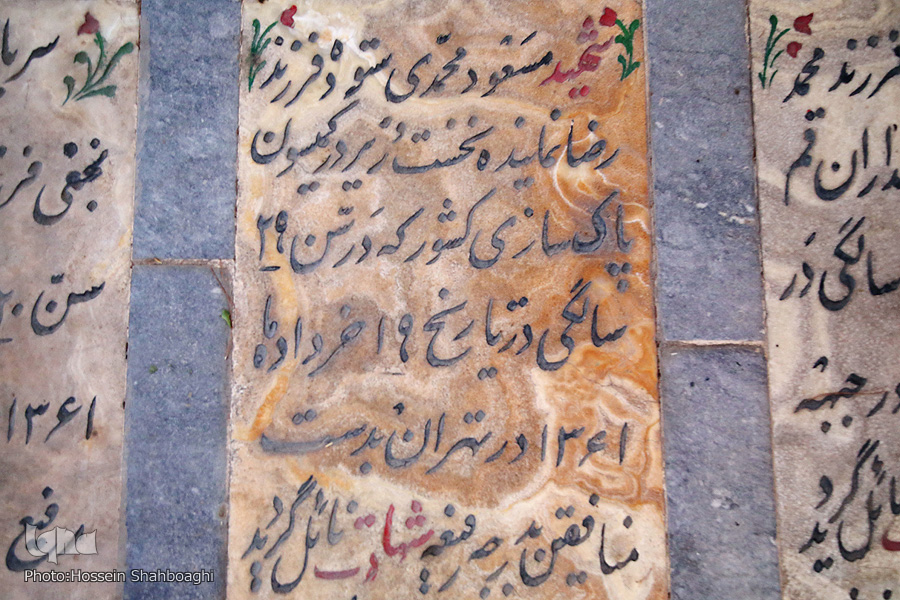 شهید مسعود محمدی ستوده فرزند
رضا نماینده نخست وزیر در کمیسیون
پاک سازی کشور که در سن ۲۹
سالگی در تاریخ ۱۹ خرداد ماه
۱۳۶۱ در تهران بدست
منافقین به درجه رفیعه شهادت نائل گردید
فرزند محمد
قم
سالگی در
در جبهه
نائل گردید
نجفی
سن
۱۳۶۱
رفیع
iqna
Photo:Hossein Shahboaghi